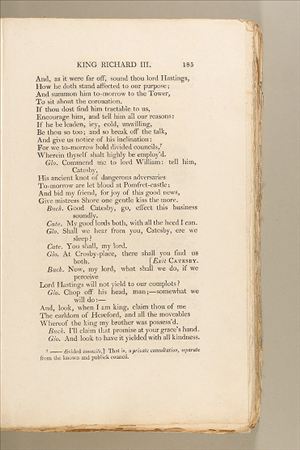 KING RICHARD III. 185
And, as it were far off, sound thou lord Hastings,
How he doth stand affected to our purpose;
And summon him to-morrow to the Tower,
To sit about the coronation.
If thou dost find him tractable to us,
Encourage him, and tell him all our reasons:
If he be leaden, icy, cold, unwilling,
Be thou so too; and so break off the talk,
And give us notice of his inclination:
For we to-morrow hold divided councils,⁷
Wherein thyself shalt highly be employ'd.
Glo. Commend me to lord William: tell him,
Catesby,
His ancient knot of dangerous adversaries
To-morrow are let blood at Pomfret-castle;
And bid my friend, for joy of this good news,
Give mistress Shore one gentle kiss the more.
Buck. Good Catesby, go, effect this business
soundly.
Cate. My good lords both, with all the heed I can.
Glo. Shall we hear from you, Catesby, ere we
sleep?
Cate. You shall, my lord.
Glo. At Crosby-place, there shall you find us
both. [Exit CATESBY.
Buck. Now, my lord, what shall we do, if we
perceive
Lord Hastings will not yield to our complots?
Glo. Chop off his head, man;—somewhat we
will do:—
And, look, when I am king, claim thou of me
The earldom of Hereford, and all the moveables
Whereof the king my brother was possess'd.
Buck. I'll claim that promise at your grace's hand.
Glo. And look to have it yielded with all kindness.
⁷ —— divided councils,] That is, a private consultation, separate
from the known and publick council.